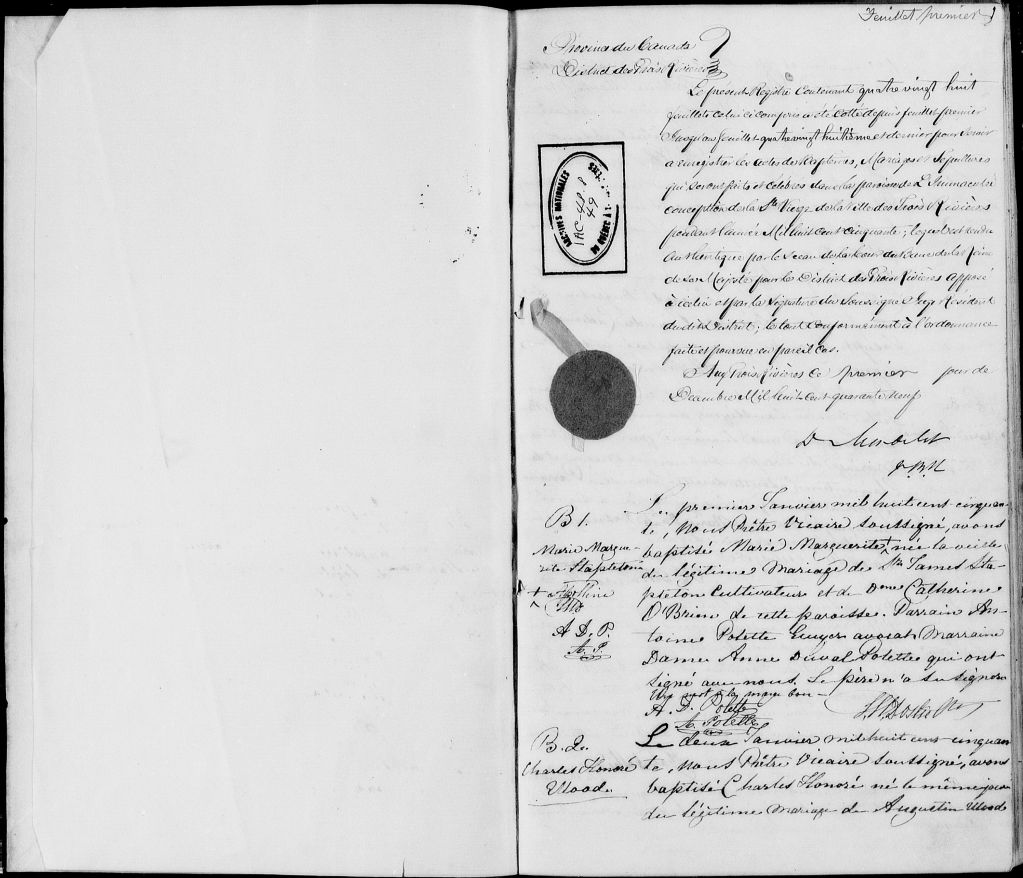 Feuillet premier
Province du Canada
District des Trois Rivières
Le présent Registre Contenant quatre vingt huit
feuillets celui ci compris a été Cotté depuis feuillet premier
Jusqu'au feuillet quatre vingt huitième et dernier pour servir
a enregistrer les actes des Baptêmes, Mariages et Sépultures
qui seront faits et célébrés dans la paroisse de L'Immaculée
conception de la Ste Vierge de la Ville des Trois Rivières
pendant l'année Mil huit cent cinquante; lequel est rendu
authentique par le Sceau de la Cour du Banc de la Reine
de Sa Majesté pour le District des Trois Rivières apposé
à icelui et par la Signature du Soussigné Juge Résident
du dit District; le tout conformément à l'ordonnance
faite et pourvue en pareil cas.
Aux Trois Rivières ce premier jour de
Décembre Mil huit cent quarante neuf
D. Mondelet
J.B.R
ARCHIVES NATIONALES
DU QUÉBEC À
B 1.
Marie Margue-
rite Stapleton
A. D. P.
A. P.
Le premier Janvier mil huit cent cinquan-
te, Nous Prêtre Vicaire soussigné, avons
baptisée Marie Marguerite née la veille
du légitime Mariage de James Sta-
pleton Cultivateur et de Dame Catherine
O'Brien de cette paroisse. Parrain An-
toine Polette Ecuyer avocat Marraine
Dame Anne Duval Polette qui ont
signé avec nous. Le père n'a su signer
Un mot à la marge bon
A. D. Polette
A. Polette
B. 2.
Charles Honoré
Wood.
Le deux Janvier mil huit cent cinquan
te, Nous Prêtre Vicaire soussigné, avons
baptisé Charles Honoré né le même jour
du légitime Mariage de Augustin Wood